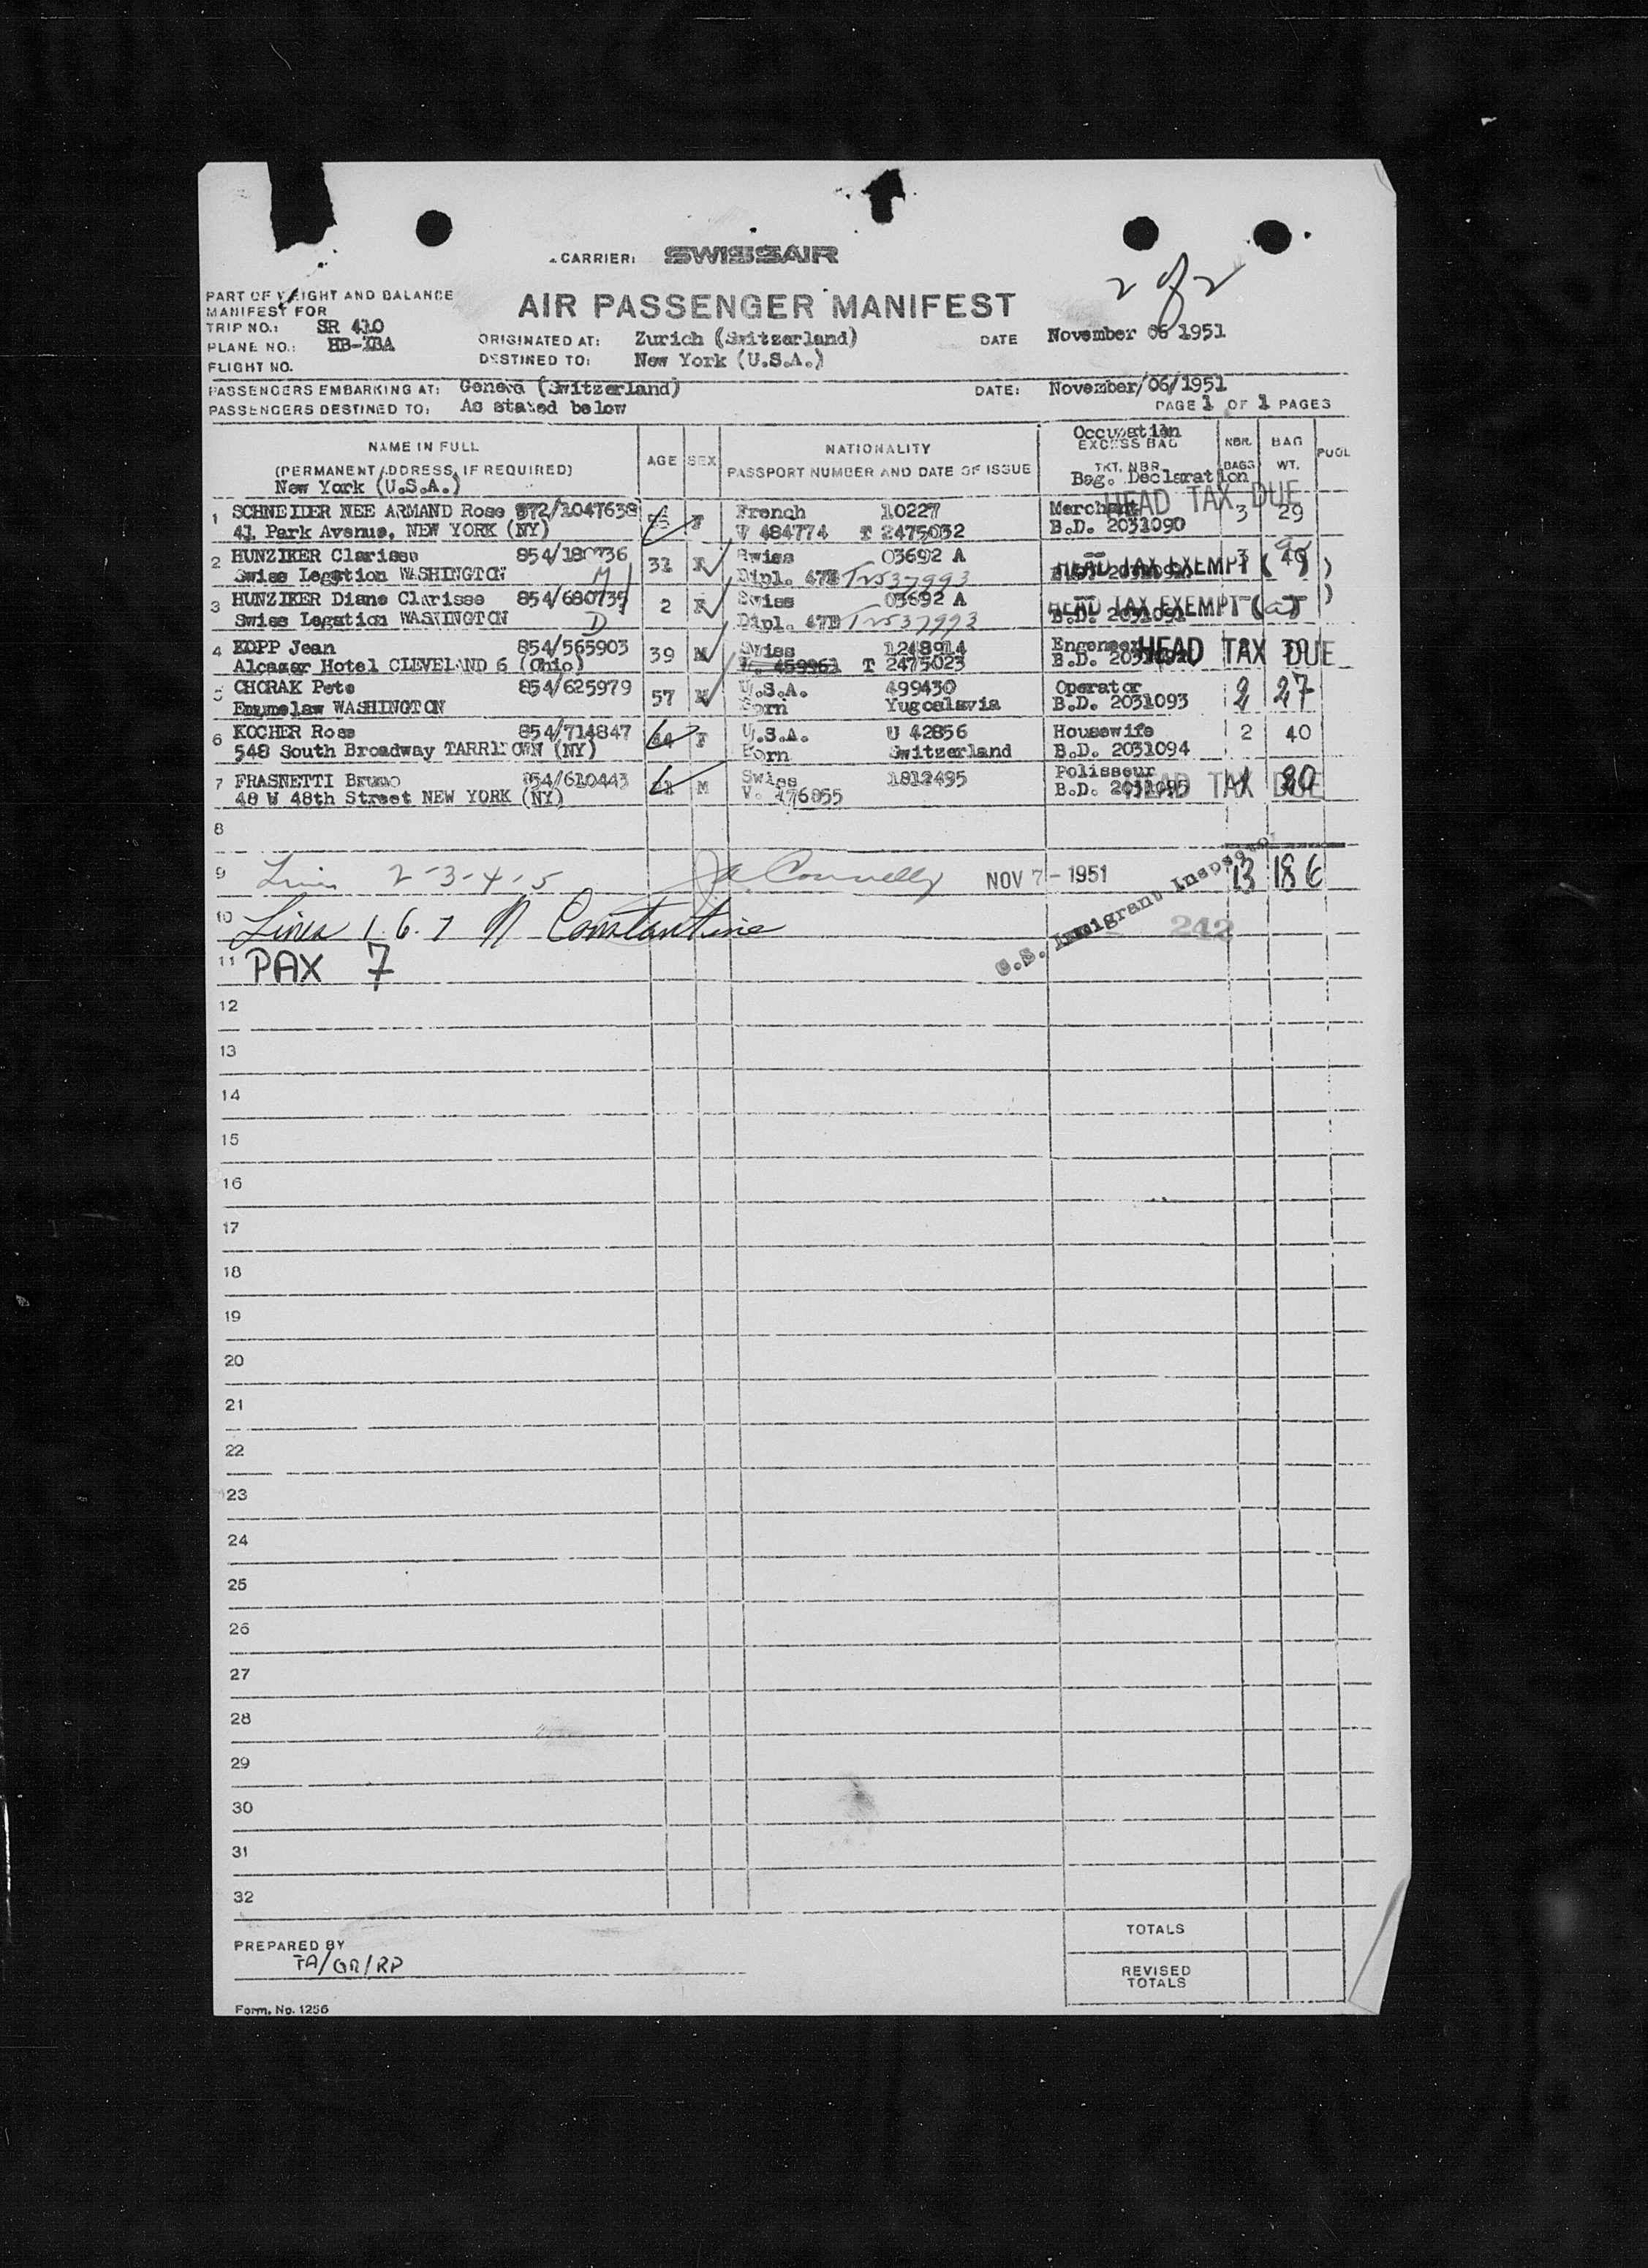 2 of 2
CARRIER: SWISSAIR
PART OF WEIGHT AND BALANCE
MANIFEST FOR
AIR PASSENGER MANIFEST
TRIP NO.: SR 410
ORIGINATED AT: Zurich (Switzerland) DATE November 06 1951
PLANE NO.:
DESTINED TO: New York (U.S.A.)
FLIGHT NO.
PASSENGERS EMBARKING AT: Geneva (Switzerland) DATE: November/06/1951
PASSENGERS DESTINED TO: As stated below PAGE 1 OF 1 PAGES
NAME IN FULL AGE SEX NATIONALITY Occupation EXCESS BAG NBR. BAGS BAG WT. POOL
(PERMANENT ADDRESS, IF REQUIRED) PASSPORT NUMBER AND DATE OF ISSUE TKT. NBR.
New York (U.S.A.) Bag. Declaration
HEAD TAX DUE
1 SCHNEIDER NEE ARMAND Rose 572/1047638 F French 10227 Merchant 3 29
41 Park Avenue, NEW YORK (NY) V 484774 T 2475032 B.D. 2031090
2 HUNZIKER Clarisse 854/180736 F Swiss 03692 A HEAD TAX EXEMPT
Swiss Legation WASHINGTON M Dipl. T 2537993
3 HUNZIKER Diane Clarisse 854/680735 2 F Swiss 03692 A HEAD TAX EXEMPT
Swiss Legation WASHINGTON D Dipl. T 2537993 B.D. 2031091
4 KOPP Jean 854/565903 39 M Swiss 1248914 HEAD TAX DUE
Alcazar Hotel CLEVELAND 6 (Ohio) V. 459961 T 2475023 B.D.
5 CHORAK Pete 854/625979 57 M U.S.A. 499430 Operator 2 27
Enumclaw WASHINGTON Born Yugoalavia B.D. 2031093
6 KOCHER Rose 854/714847 44 F U.S.A. U 42856 Housewife 2 40
548 South Broadway TARRYTOWN (NY) Born Switzerland B.D. 2031094
7 FRASNETTI Bruno 854/610443 M Swiss 1812495 Polisseur
48 W 48th Street NEW YORK (NY) V. 476855 B.D. 2031095 HEAD TAX DUE
8
9 2-3-4-5 Connelly NOV 7 - 1951 13 186
U.S. Immigrant Inspector
242
10 Lines 1. 6. 7 N Constantine
11 PAX 7
12
13
14
15
16
17
18
19
20
21
22
23
24
25
26
27
28
29
30
31
32
TOTALS
PREPARED BY
FA/GR/RP
REVISED
TOTALS
Form. No. 1256